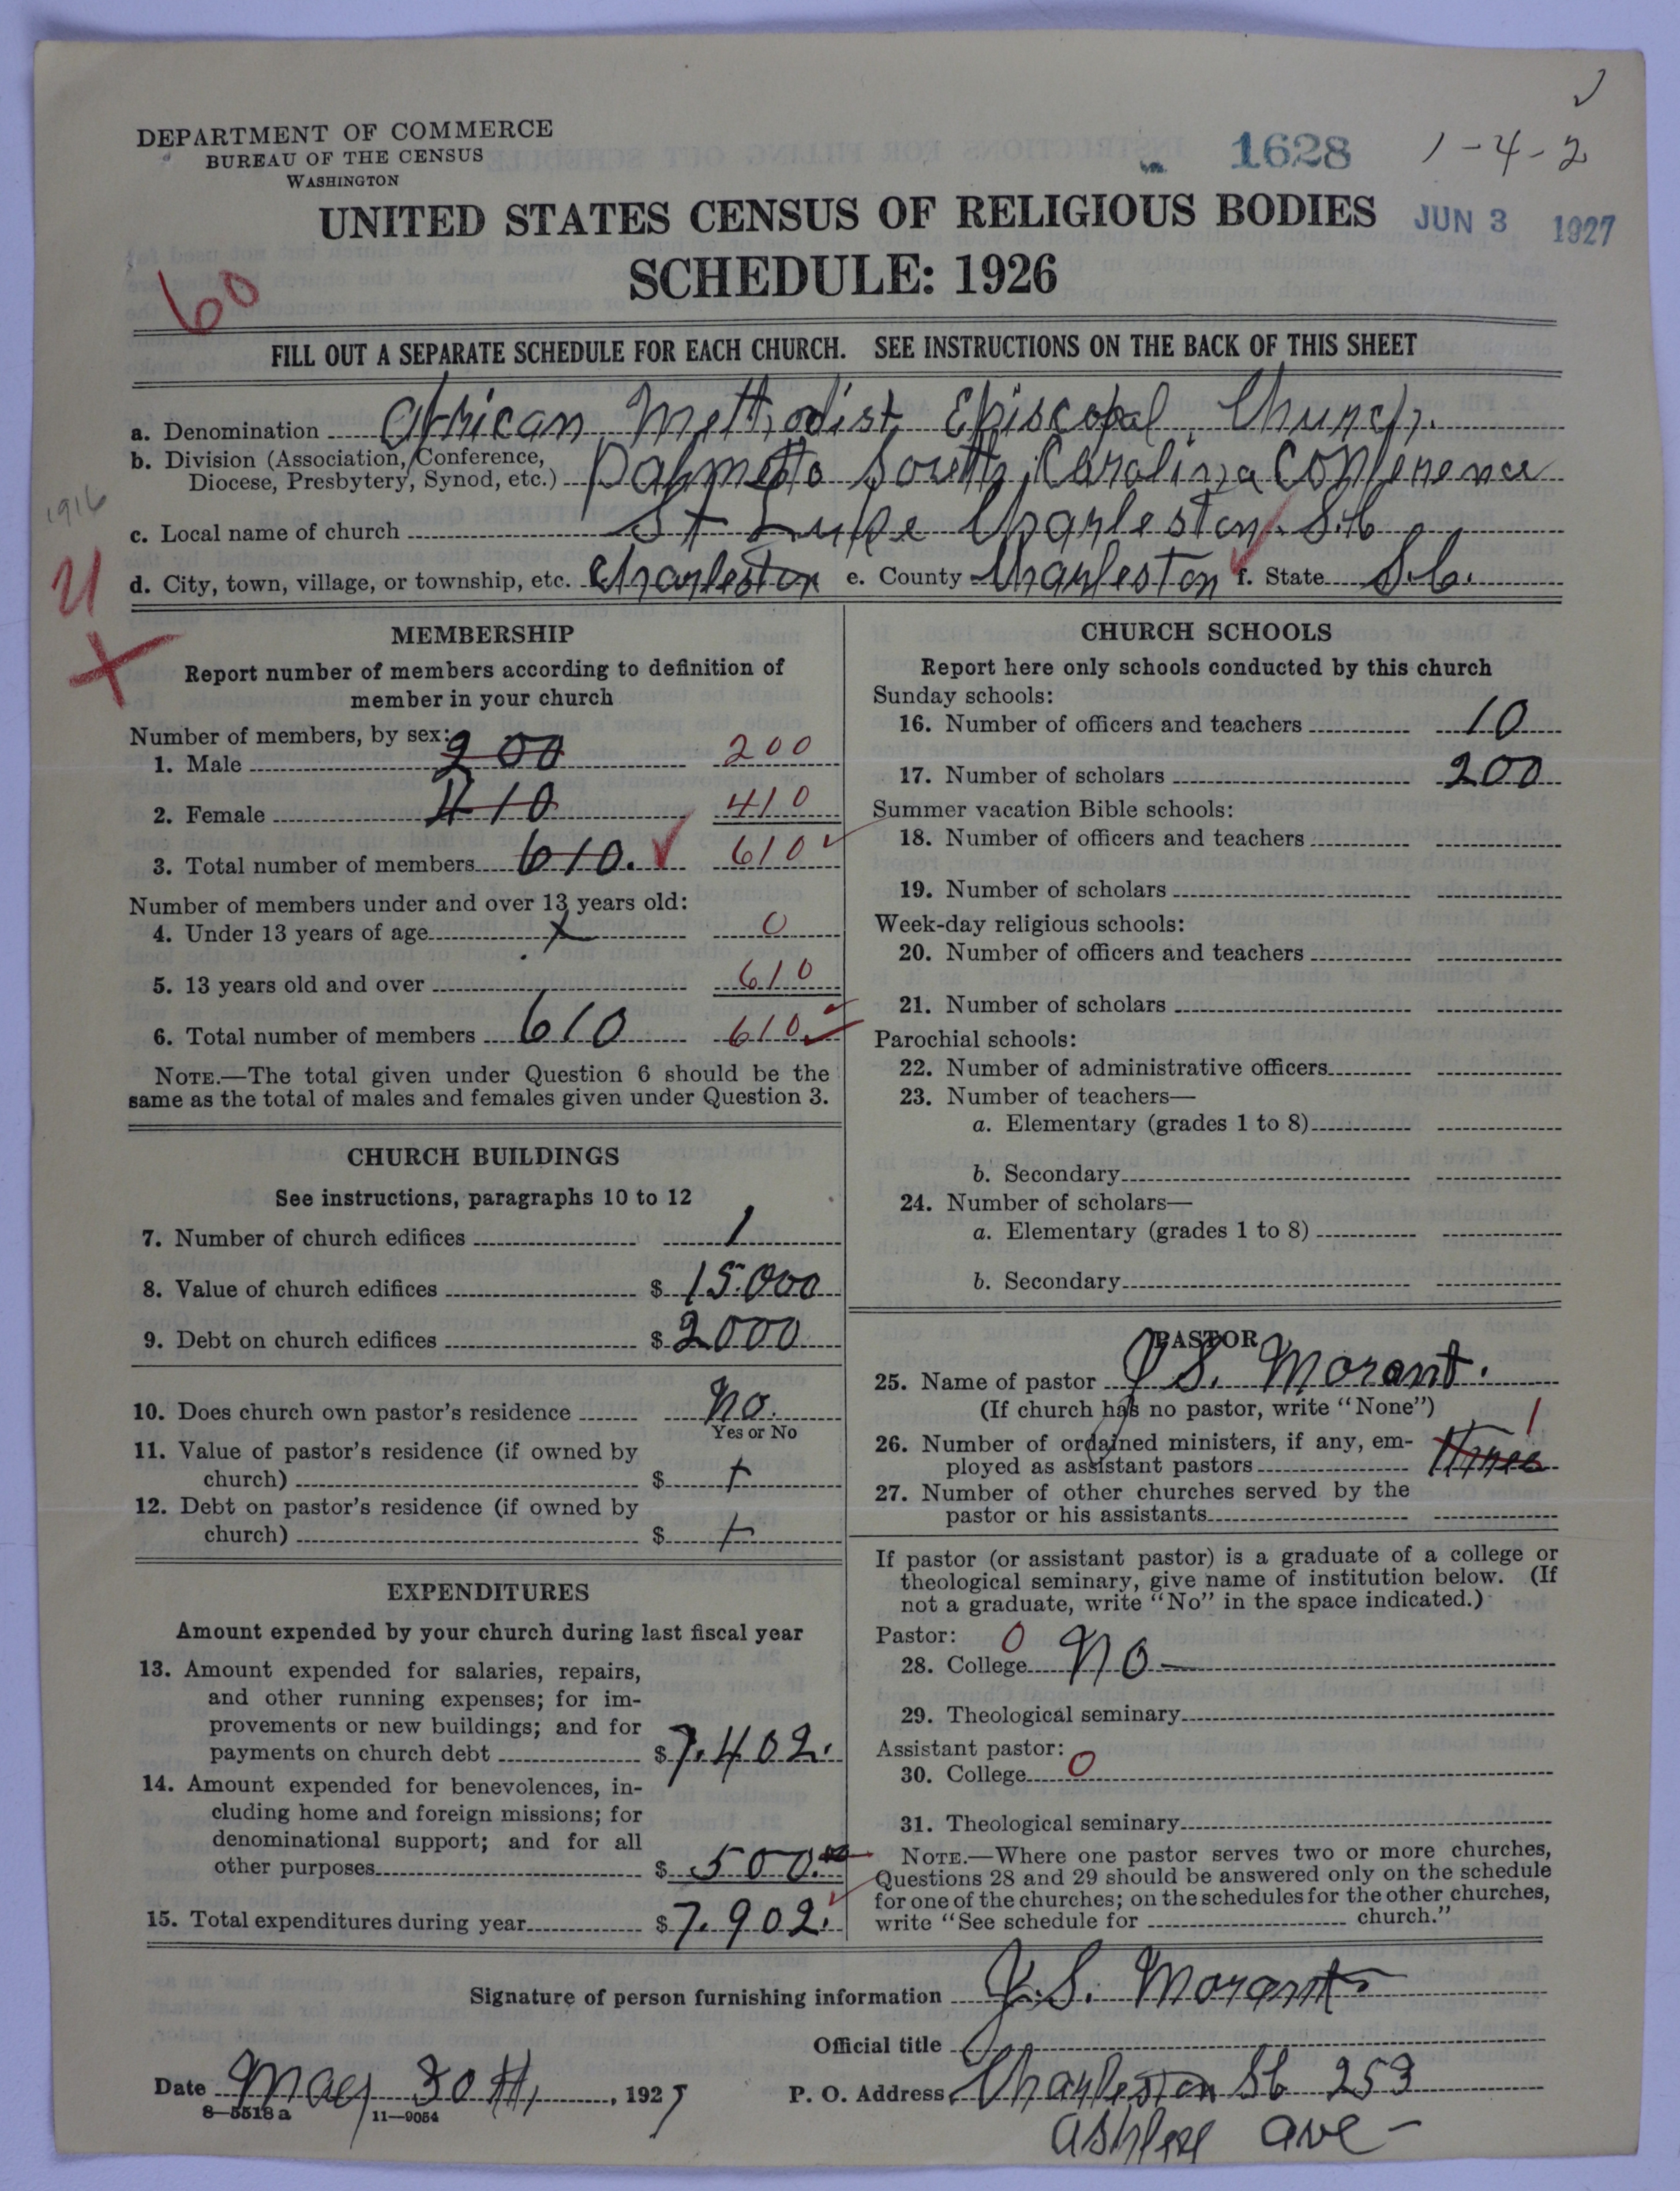 DEPARTMENT OF COMMERCE
BUREAU OF THE CENSUS
WASHINGTON
1628
1-4-2
UNITED STATES CENSUS OF RELIGIOUS BODIES
JUN 3 1927
SCHEDULE: 1926
60
FILL OUT A SEPARATE SCHEDULE FOR EACH CHURCH. SEE INSTRUCTIONS ON THE BACK OF THIS SHEET
a. Denomination African Methodist Episcopal Church.
b. Division (Association, Conference, Diocese, Presbytery, Synod, etc.) Palmetto South Carolina Conference
1916
c. Local name of church St Luke Charleston S.C
d. City, town, village, or township, etc. Charleston e. County Charleston f. State S.C.
MEMBERSHIP
Report number of members according to definition of
member in your church
Number of members, by sex:
1. Male 200 200
2. Female 410 410
3. Total number of members 610. 610
Number of members under and over 13 years old:
4. Under 13 years of age x 0
5. 13 years old and over 610
6. Total number of members 610 610
NOTE.—The total given under Question 6 should be the
same as the total of males and females given under Question 3.
CHURCH BUILDINGS
See instructions, paragraphs 10 to 12
7. Number of church edifices 1
8. Value of church edifices $ 15.000
9. Debt on church edifices $ 2000
10. Does church own pastor's residence No.
Yes or No
11. Value of pastor's residence (if owned by
church) $ +
12. Debt on pastor's residence (if owned by
church) $ +
EXPENDITURES
Amount expended by your church during last fiscal year
13. Amount expended for salaries, repairs,
and other running expenses; for im-
provements or new buildings; and for
payments on church debt $ 7.402.
14. Amount expended for benevolences, in-
cluding home and foreign missions; for
denominational support; and for all
other purposes $ 500.00
15. Total expenditures during year $ 7.902.
CHURCH SCHOOLS
Report here only schools conducted by this church
Sunday schools:
16. Number of officers and teachers 10
17. Number of scholars 200
Summer vacation Bible schools:
18. Number of officers and teachers
19. Number of scholars
Week-day religious schools:
20. Number of officers and teachers
21. Number of scholars
Parochial schools:
22. Number of administrative officers
23. Number of teachers—
a. Elementary (grades 1 to 8)
b. Secondary
24. Number of scholars—
a. Elementary (grades 1 to 8)
b. Secondary
PASTOR
25. Name of pastor J S. Morant.
(If church has no pastor, write "None")
1
26. Number of ordained ministers, if any, em-
ployed as assistant pastors Three
27. Number of other churches served by the
pastor or his assistants
If pastor (or assistant pastor) is a graduate of a college or
theological seminary, give name of institution below. (If
not a graduate, write "No" in the space indicated.)
Pastor: 0
28. College No
29. Theological seminary
Assistant pastor:
30. College 0
31. Theological seminary
NOTE.—Where one pastor serves two or more churches,
Questions 28 and 29 should be answered only on the schedule
for one of the churches; on the schedules for the other churches,
write "See schedule for church."
Signature of person furnishing information J.S. Morant
Official title
Date May 30th, 1927 P. O. Address Charleston SC 253
8—5518a 11—9054
Ashley ave